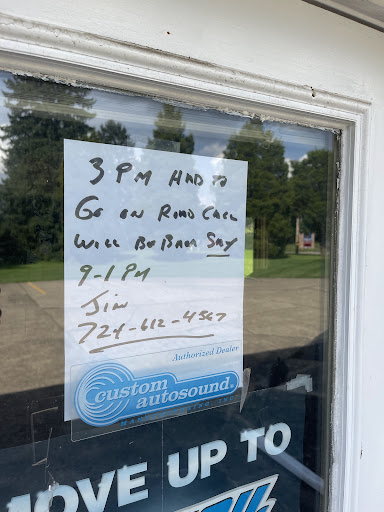 3 PM HAD TO
GO ON ROAD CALL
WILL BE BACK SAT
9-1 PM
JIM
724-612-4567
Authorized Dealer
custom
autosound.
MOVE UP TO